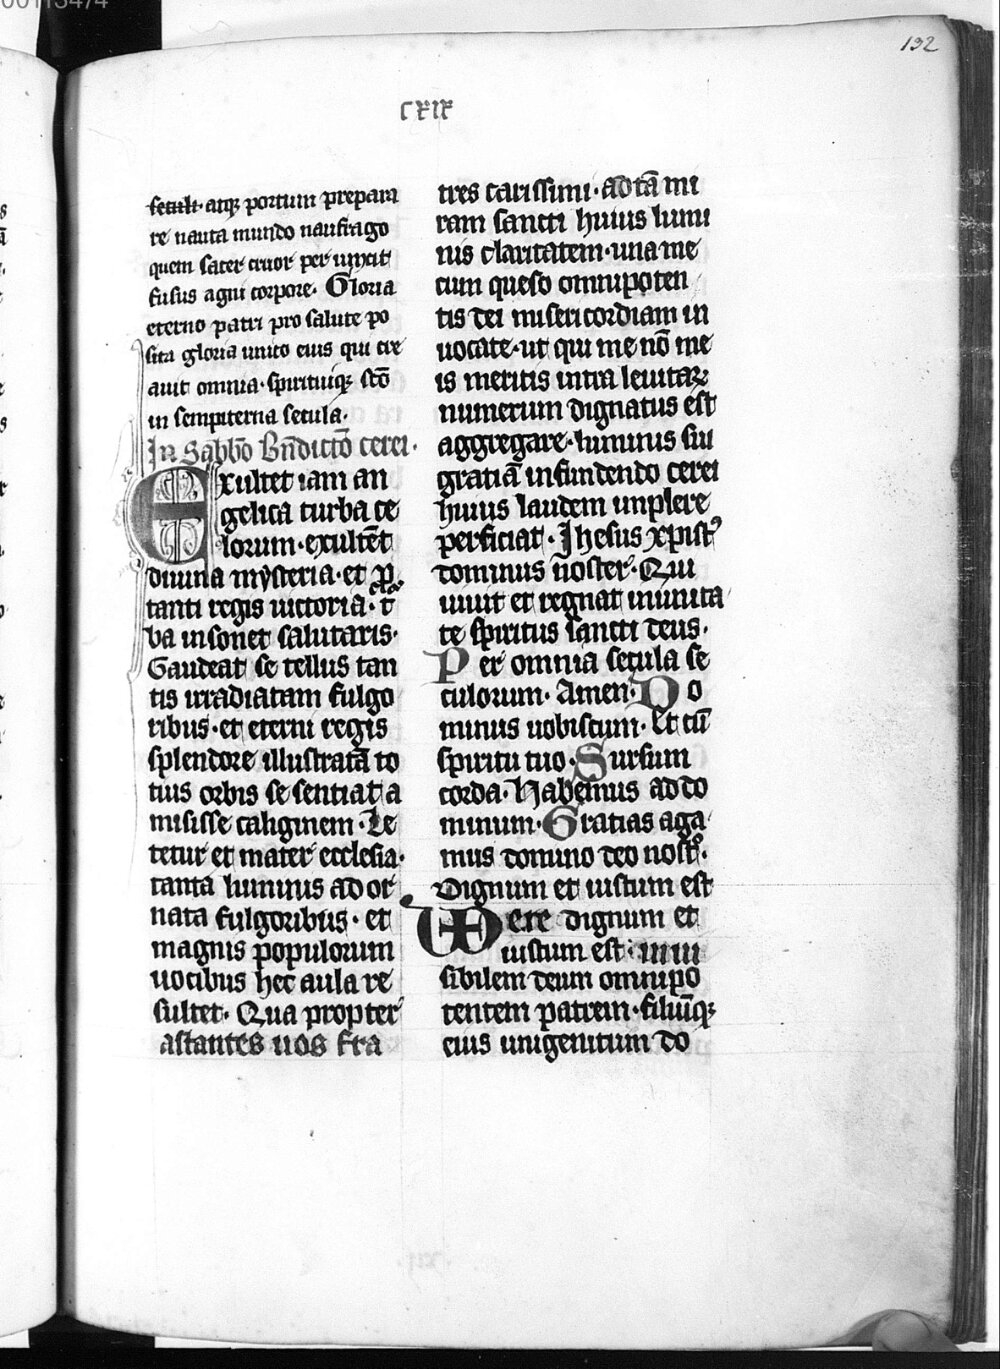 00113474
132
cxix
seculi· atq; portum prepara
re nauta mundo naufrago
quem sacer cruor perunxit
fusus agni corpore· Gloria
eterno patri pro salute po
sita gloria unico eius qui cre
auit omnia· spirituiq; sc̄o
in sempiterna secula·
In Sabb̄o Bn̄dictō cerei·
Exultet iam an
gelica turba ce
lorum· exultēt
diuina mysteria· et p̱
tanti regis uictoria· t̄
ba insonet salutaris·
Gaudeat se tellus tan
tis irradiatam fulgo
ribus· et eterni regis
splendore illustratā to
tius orbis se sentiat a
misisse caliginem· Le
tetur et mater ecclesia·
tanta luminis ador
nata fulgoribus· et
magnis populorum
uocibus hec aula re
sultet· Qua propter
astantes uos fra
tres carissimi· ad tā mi
ram sancti huius lumi
nis claritatem· una me
cum queso omnipoten
tis dei misericordiam in
uocate· ut qui me nō me
is meritis intra leuitaꝝ
numerum dignatus est
aggregare· luminis sui
gratiā infundendo cerei
huius laudem implere
perficiat· Ihesus xpist᾿
dominus noster· Qui
uiuit et regnat in unita
te spiritus sancti deus·
Per omnia secula se
culorum· Amen· Do
minus uobiscum· Et cū
spiritu tuo· Sursum
corda· Habemus ad do
minum· Gratias aga
mus domino deo nostꝰ·
Dignum et iustum est
Vere dignum et
iustum est· inui
sibilem deum omnipo
tentem patrem· filiūq;
eius unigenitum do